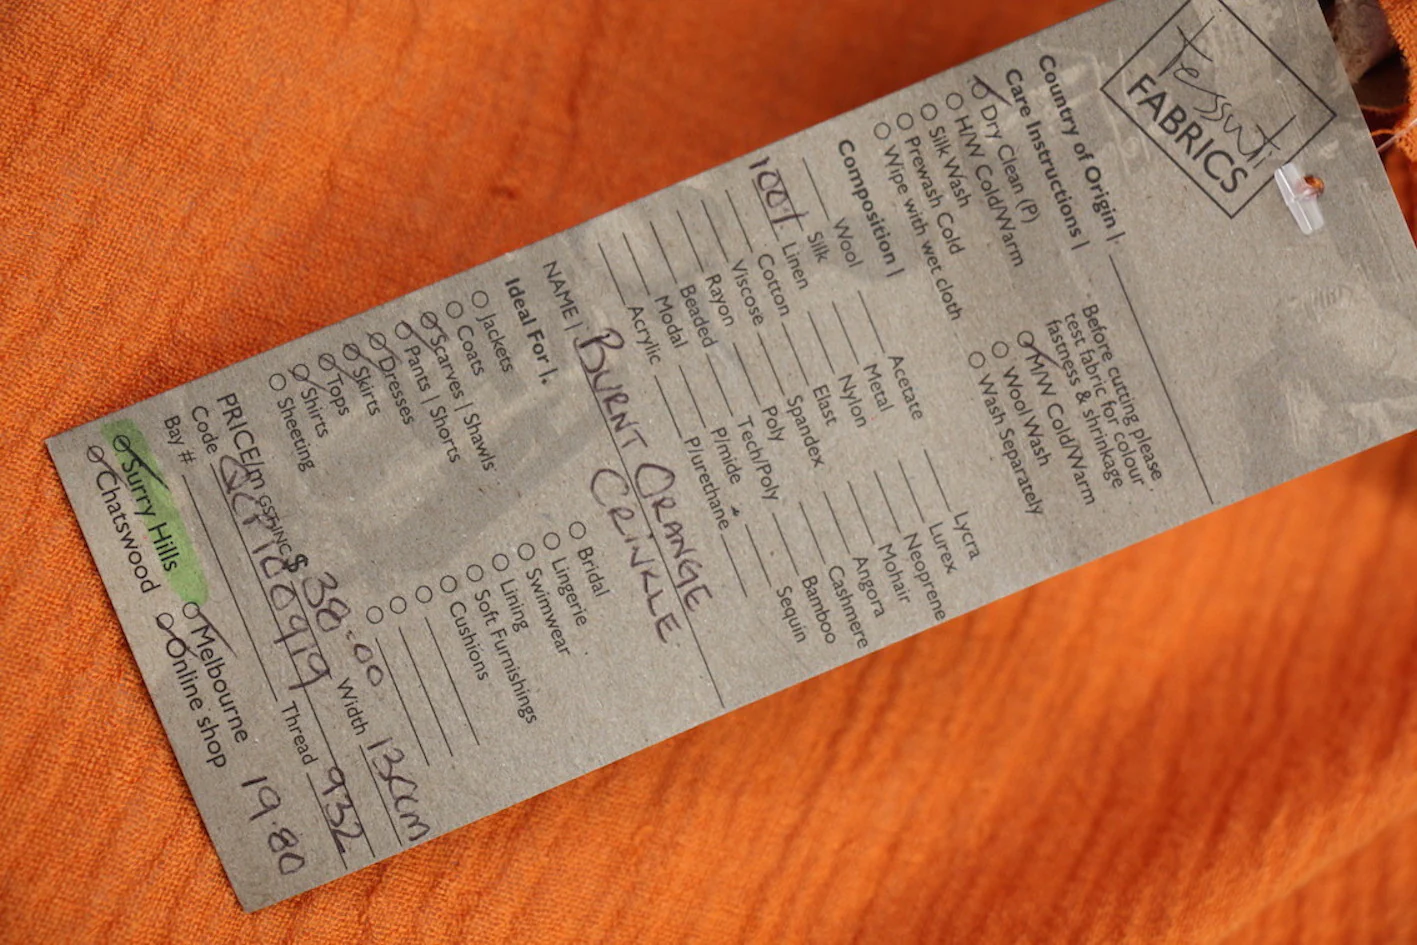 tessuti
FABRICS
Country of Origin |
Care Instructions |
Dry Clean (P)
H/W Cold/Warm
Silk Wash
Prewash Cold
Wipe with wet cloth
Before cutting please
test fabric for colour
fastness & shrinkage
M/W Cold/Warm
Wool Wash
Wash Separately
Composition |
Wool
Silk
100% Linen
Cotton
Viscose
Rayon
Beaded
Modal
Acrylic
Acetate
Metal
Nylon
Elast
Spandex
Poly
Tech/Poly
P/mide
P/urethane
Lycra
Lurex
Neoprene
Mohair
Angora
Cashmere
Bamboo
Sequin
NAME | BURNT ORANGE
CRINKLE
Ideal For |
Jackets
Coats
Scarves | Shawls
Pants | Shorts
Dresses
Skirts
Tops
Shirts
Sheeting
Bridal
Lingerie
Swimwear
Lining
Soft Furnishings
Cushions
PRICE/m GST INC $ 38.00 Width 130cm
Code Thread 932
Bay #
Surry Hills Melbourne
Chatswood Online shop
19.80